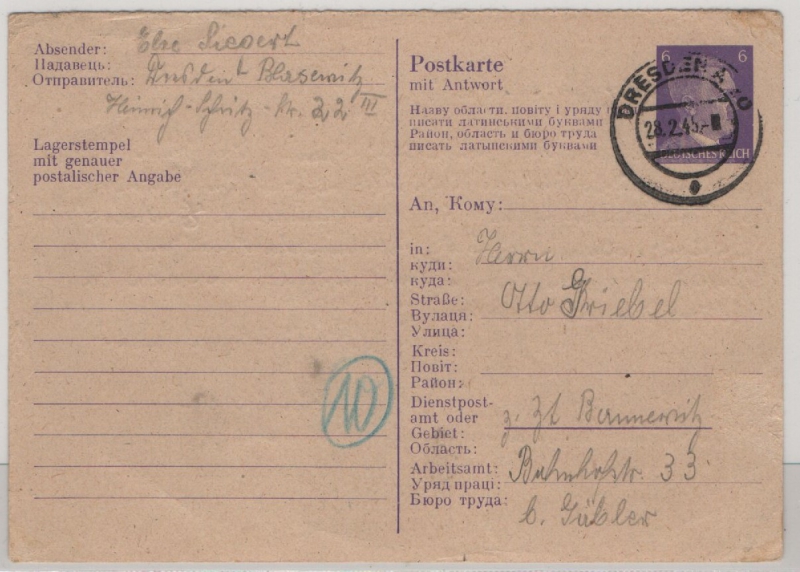 Absender: Else Siegert
Падавець:
Отправитель: Dresden Blasewitz
Heinrich-Schütz-Str. 22 III
Lagerstempel
mit genauer
postalischer Angabe
10
Postkarte
mit Antwort
Назву области, повіту і уряду
писати латинськими буквами
Район, область и бюро труда
писать латынскими буквами
6 6
DRESDEN A
28.2.45.
DEUTSCHES REICH
An, Кому:
in: Herrn
куди:
куда:
Straße: Otto Griebel
Вулаця:
Улица:
Kreis:
Повіт:
Район:
Dienstpost-
amt oder z. Zt Bannewitz
Gebiet:
Область:
Arbeitsamt: Bahnhofstr. 33
Уряд праці:
Бюро труда: b. Gäbler